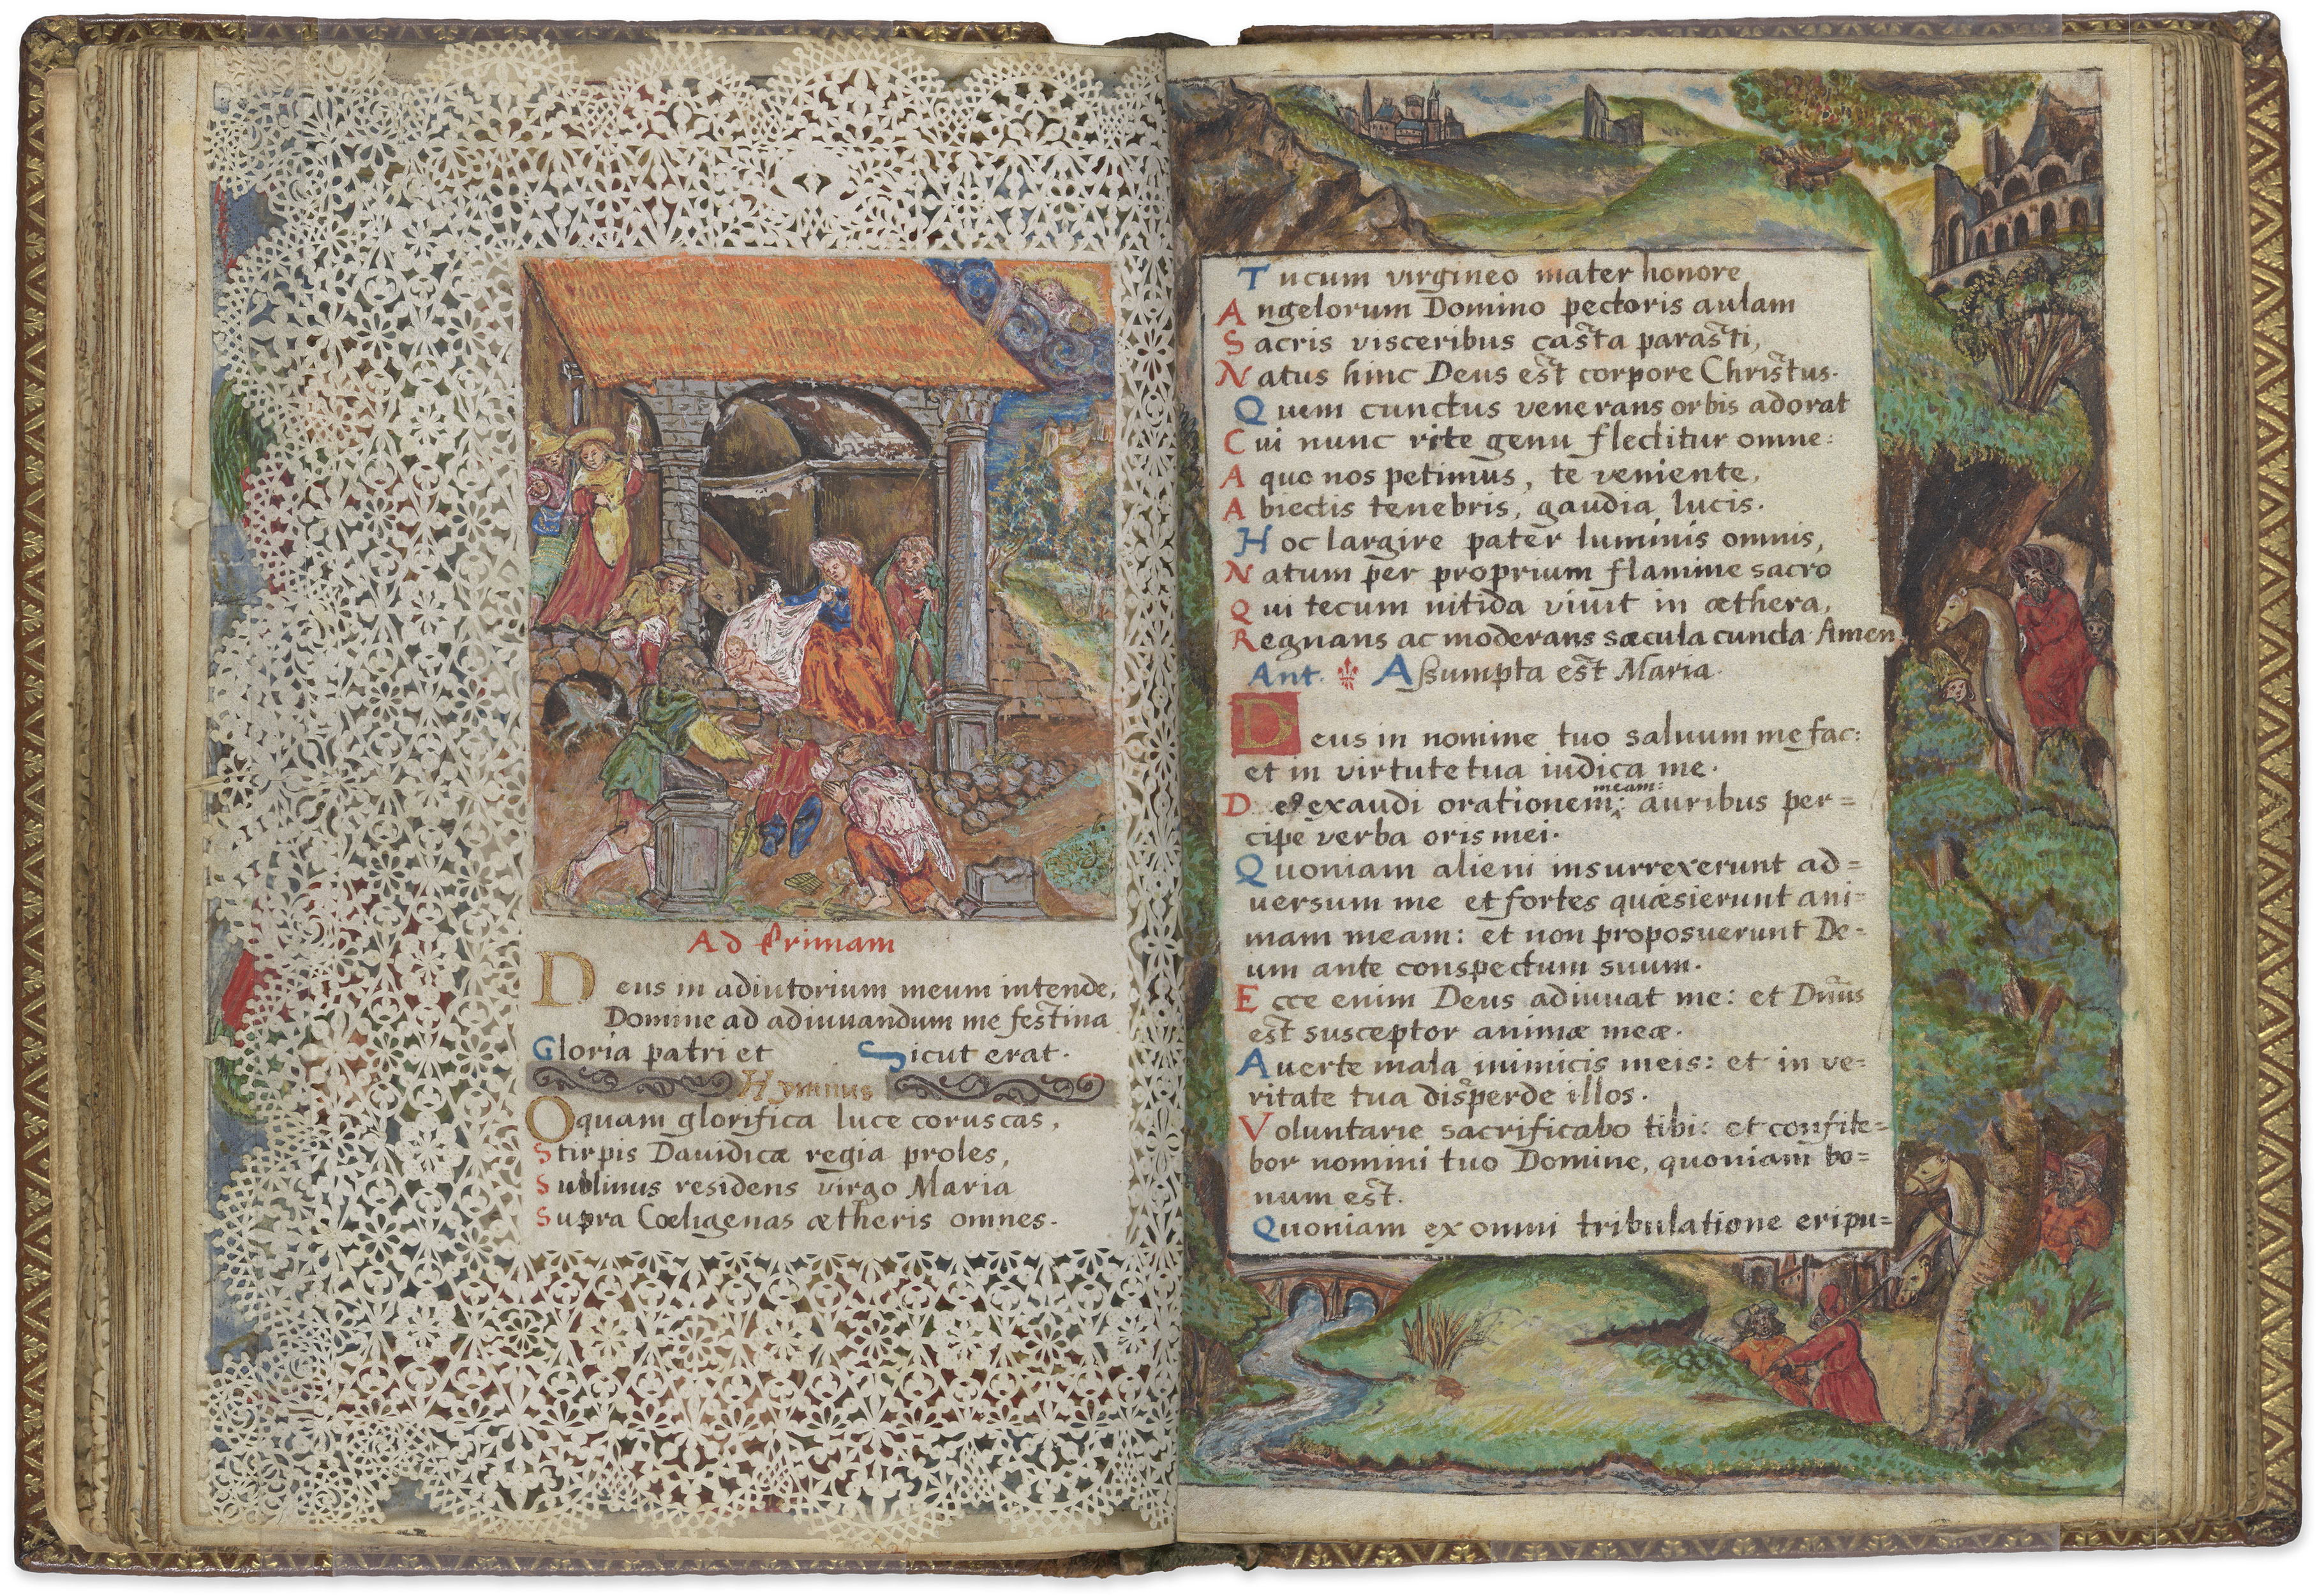 Ad Primam
Deus in adiutorium meum intende,
Domine ad adiuuandum me festina
Gloria patri et Sicut erat.
Hymnus
O quam glorifica luce coruscas,
Stirpis Dauidicæ regia proles,
Sublimis residens virgo Maria
Supra Cœligenas ætheris omnes.
Tu cum virgineo mater honore
Angelorum Domino pectoris aulam
Sacris visceribus casta parasti,
Natus hinc Deus est corpore Christus.
Quem cunctus venerans orbis adorat
Cui nunc rite genu flectitur omne:
A quo nos petimus, te veniente,
Abiectis tenebris, gaudia lucis.
Hoc largire pater luminis omnis,
Natum per proprium flamine sacro
Qui tecum nitida viuit in æthera,
Regnans ac moderans sæcula cuncta Amen
Ant. Assumpta est Maria.
Deus in nomine tuo saluum me fac:
et in virtute tua iudica me.
meam:
De9 exaudi orationem: auribus per=
cipe verba oris mei.
Quoniam alieni insurrexerunt ad=
uersum me et fortes quæsierunt ani=
mam meam: et non proposuerunt De=
um ante conspectum suum.
Ecce enim Deus adiuuat me: et Dnus
est susceptor animæ meæ.
Auerte mala inimicis meis: et in ve=
ritate tua disperde illos.
Voluntarie sacrificabo tibi: et confite=
bor nomini tuo Domine, quoniam bo=
num est.
Quoniam ex omni tribulatione eripu=